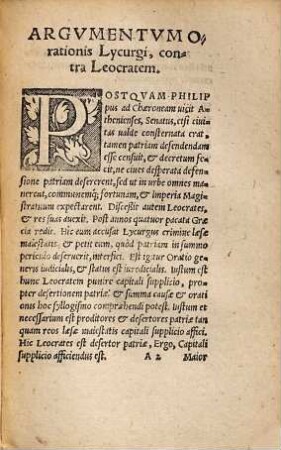 ARGVMENTVM O⸗
rationis Lycurgi, con⸗
tra Leocratem.
POSTQVAM PHILIP
pus ad Chæroneam uicit A⸗
thenienses, Senatus, etsi ciui⸗
tas ualde consternata erat,
tamen patriam defendendam
esse censuit, & decretum fe⸗
cit, ne ciues desperata defen⸗
sione patriam desererent, sed ut in urbe omnes ma⸗
nerent, communemq; fortunam, & imperia Magi⸗
stratuum expectarent. Discessit autem Leocrates,
& res suas auexit. Post annos quatuor pacata Græ
cia redit. Hic eum accusat Lycurgus crimine læsæ
maiestatis, & petit eum, quòd patriam in summo
periculo deseruerit, interfici. Est igitur Oratio ge⸗
neris iudicialis, & status est iuredicialis. Iustum est
hunc Leocratem punire capitali supplicio, pro⸗
pter desertionem patriæ. & summa causæ & orati
onis hoc syllogismo compræhendi potest. Iustum et
necessarium est proditores & desertores patriæ tan
quam reos læsæ maiestatis capitali supplicio affici.
Hic Leocrates est desertor patriæ, Ergo, Capitali
supplicio afficiendus est. A 2 Maior